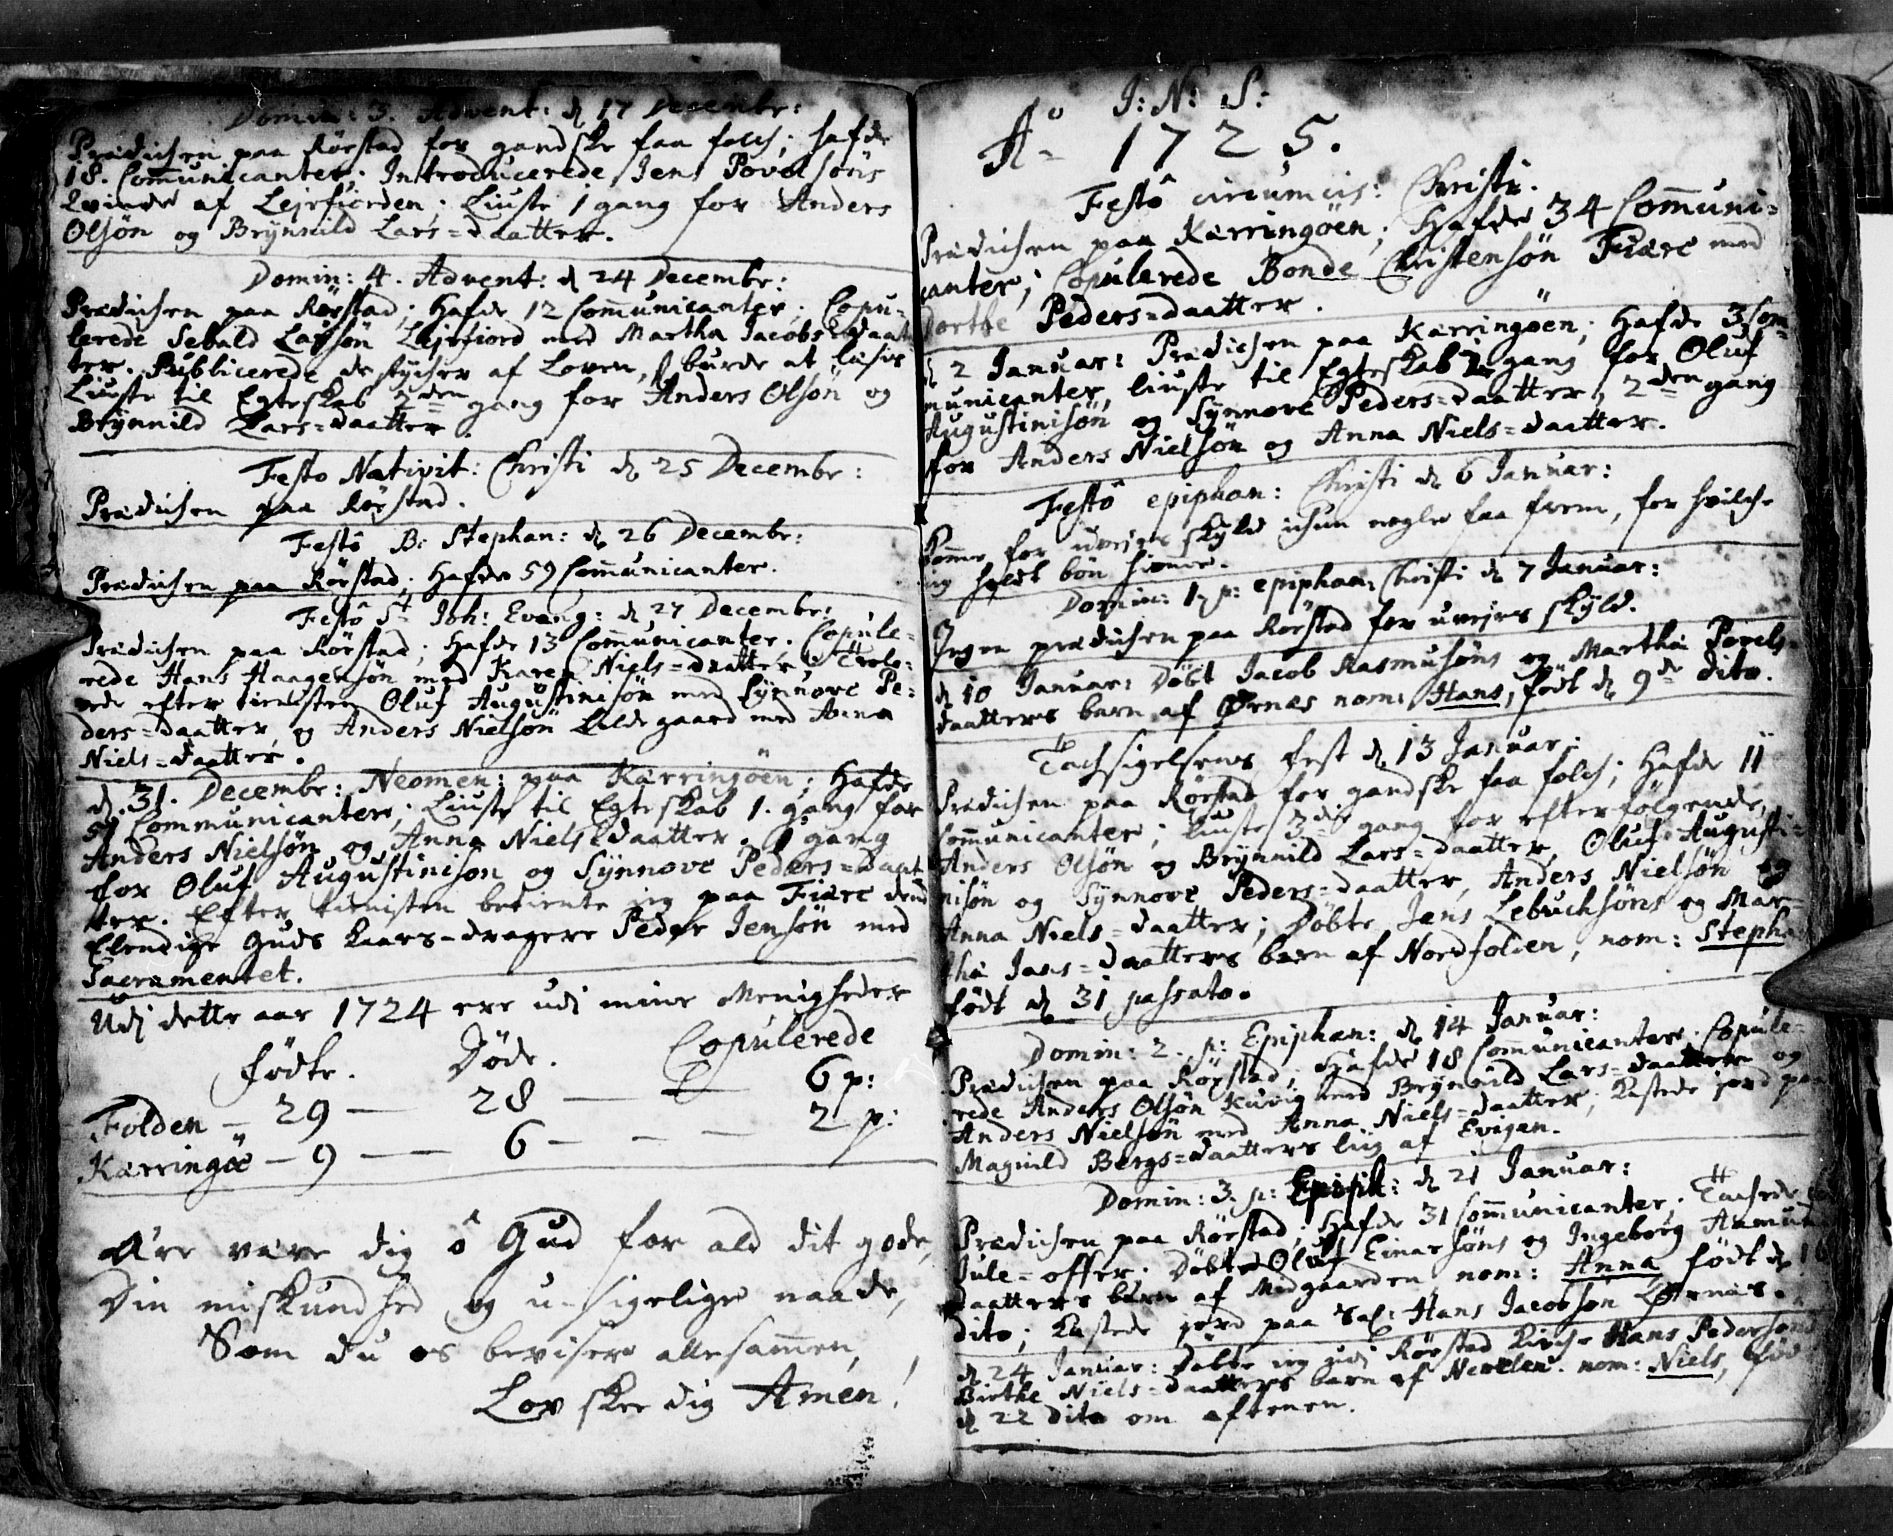 Domin: 3. Advent: d 17 Decembr:
Prædichen paa Rörstad for gandske faa folch; hafde
18. Com̄unicanter. Introducerede Jens Povelsöns
Qvinde af Lejrfiorden; Liuste 1 gang for Anders
Olsön og Brÿnnild Lars=daatter.
Domin: 4. Advent: d 24 Decembr:
Prædichen paa Rörstad; Hafde 12 Com̄unicanter. Copu-
lerede Sebald Larsön Lejrfiord med Martha Jacobs=daat
ter. Publicerede de stÿcher af Loven, burde at læsis
Liuste til Egteskab 2den gang for Anders Olsön og
Brÿnnild Lars=daatter.
Festo Nativit: Christi d 25 Decembr:
Prædichen paa Rörstad.
Festô B: Stephan: d 26 Decembr:
Prædichen paa Rörstad; Hafde 59 Com̄unicanter.
Festô St Joh: Evang: d 27 Decembr:
Prædichen paa Rörstad; Hafde 13 Com̄unicanter. Copule-
rede Hans Haagensön med Karen Niels=daatter. Trolo-
vede efter tienisten Oluf Augustinisön med Sÿnnove Pe-
ders=daatter, og Anders Nielsön Lildegaard med Anna
Niels=daatter.
d. 31. Decembr: Neomen: paa Kærringöen; Hafde
51 Communicanter; Liuste til Egteskab 1. gang for
Anders Nielsön og Anna Niels=daatter. 1 gang
for Oluf Augustinison og Sÿnnove Peders=daat
ter. Efter tienisten betiente ieg paa Fiære dend
Elendige Guds kaars-dragere Peder Jensön med
Sacramentet.
Udj dette aar 1724 ere udj mine Menigheder
födte. Döde. Copulerede
Folden — 29 — 28 — — 6 p:
Kærringöe — 9 — — 6 — — — 2 p:
Ære være dig ô Gud for ald dit gode,
Din miskundhed og u-sigelige naade,
Som du os beviser allesam̄en,
Lov skee dig Amen!
J: N: S:
Aö 1725.
Festô circumcis: Christi.
Prædichen paa Kærringöen; Hafde 34 Com̄uni-
canter; Copulerede Bonde Christensön Fiære med
Dorthe Peders=daatter.
d 2 Januar: Prædichen paa Kærringöen; Hafde 3 Com-
municanter, liuste til Egteskab 2 gang for Oluf
Augustinisön og Sÿnnove Peders=daatter, 2den gang
for Anders Nielsön og Anna Niels=daatter.
Festô epiphan: Christi d 6 Januar:
Kom̄e for uvejrs skÿld ichun nogle faa frem, for hvilche
ieg holdt bön hiemme.
Domin: 1 p: epiphan: Christi d 7 Januar:
Ingen prædichen paa Rörstad for uvejrs skÿld.
d 10 Januar: Döbt Jacob Rasmusöns og Martha Povels-
daatters barn af Örnæs nom: Hans, födt d 9de dito.
Tachsigelsens fest d 13 Januar:
Prædichen paa Rörstad for gandske faa folch; Hafde 11
Com̄unicanter; Liuste 3die gang for efterfölgende,
Anders Olsön og Brÿnnild Lars=daatter, Oluf Augusti-
nisön og Sÿnnove Peders=daatter, Anders Nielsön og
Anna Niels=daatter; Döbte Jens Lebrichsöns og Mar-
tha Jans=daatters barn af Nordfolden, nom: Stepha
födt d 31 passato.
Domin: 2. p: Epiphan: d 14 Januar:
Prædichen paa Rörstad; Hafde 18 Com̄unicanter. Copule-
rede Anders Olsön Kuvig med Brÿnnild Lars=daatter og
Anders Nielsön med Anna Niels=daatter; Kastede jord paa
Magnild Bergs=daatters liig af Evigan.
Domin: 3. p: Epiph: d 21 Januar:
Prædichen paa Rörstad; Hafde 31 Com̄unicanter. Tachede for
Jule=offer. Döbte Oluf Einarsöns og Ingeborg Aamunds
daatters barn af Medgaarden nom: Anna födt d 16
dito; Kastede jord paa Sal: Hans Jacobson Lörnæs.
d 24 Januar: Döbte ieg udj Rörstad Kirche Hans Pedersöns
Birthe Niels=daatters barn af Nevelen. nom: Niels, föd
d 22 dito om aftenen.